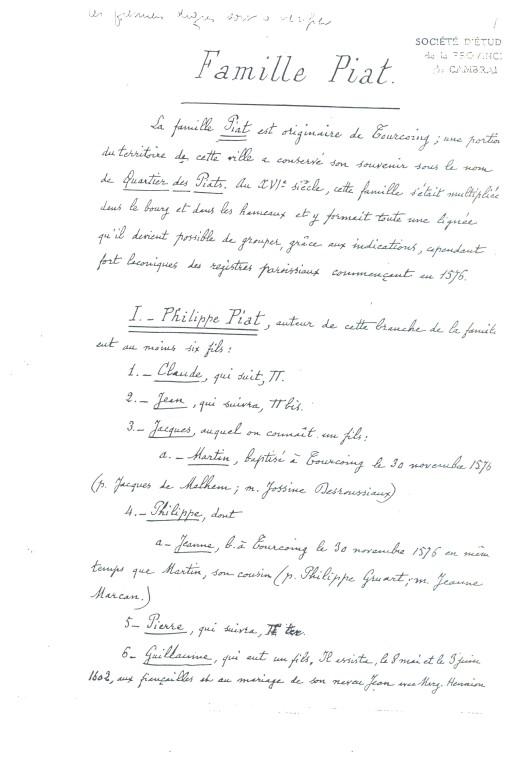 les premiers degrés sont à vérifier
1
SOCIÉTÉ D'ÉTUD
de la PROVINC
de CAMBRAI
Famille Piat.
La famille Piat est originaire de Tourcoing ; une portion
du territoire de cette ville a conservé son souvenir sous le nom
de Quartier des Piats. Au XVIe siècle, cette famille s'était multipliée
dans le bourg et dans les hameaux et y formait toute une lignée
qu'il devient possible de grouper, grâce aux indications, cependant
fort laconiques des registres paroissiaux commençant en 1576.
I. - Philippe Piat, auteur de cette branche de la famille
eut au moins six fils :
1. - Claude, qui suit, II.
2. - Jean, qui suivra, II bis.
3. - Jacques, auquel on connaît un fils :
a. - Martin, baptisé à Tourcoing le 30 novembre 1576
(p. Jacques de Malhem ; m. Jossine Desroussiaux)
4. - Philippe, dont
a - Jeanne, b. à Tourcoing le 30 novembre 1576 en même
temps que Martin, son cousin (p. Philippe Gruart ; m. Jeanne
Marcan.)
5 - Pierre, qui suivra, II ter.
6 - Guillaume, qui eut un fils. Il assista, le 8 mai et le 3 juin
1602, aux fiançailles et au mariage de son neveu Jean avec Marg. Hennion